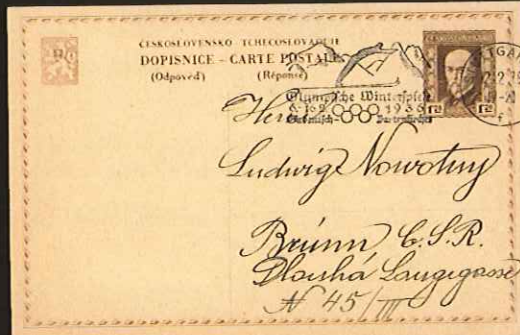 ČESKOSLOVENSKO - TCHÉCOSLOVAQUIE
DOPISNICE - CARTE POSTALE
(Odpověď) (Réponse)
Olympische Winterspiele
6.-16.2. 1936
Garmisch- Partenkirchen
Herrn
Ludwig Nowotny
Brünn Č.S.R.
Dlouhá Langegasse
N 45/III